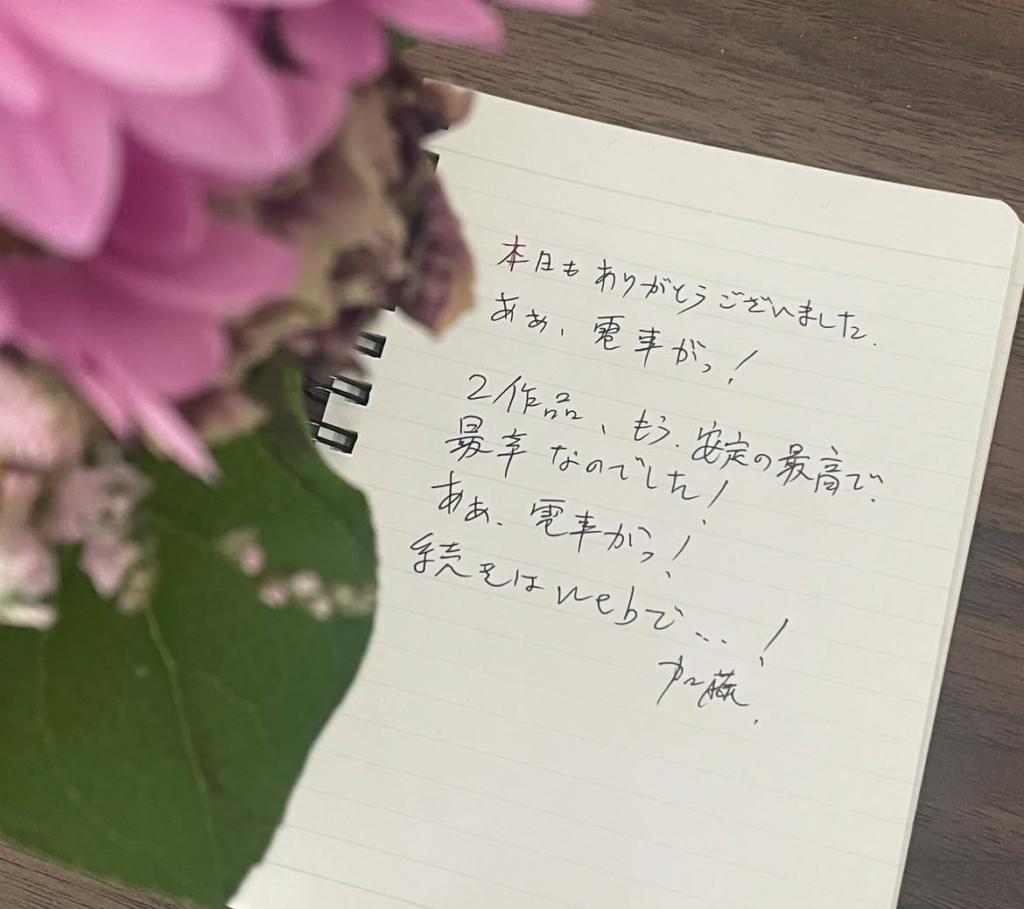 本日もありがとうございました.
ああ、電車がっ!
2作品、もう、安定の最高で、
最幸なのでした!
ああ、電車がっ!
続きはWebで…!
加藤.